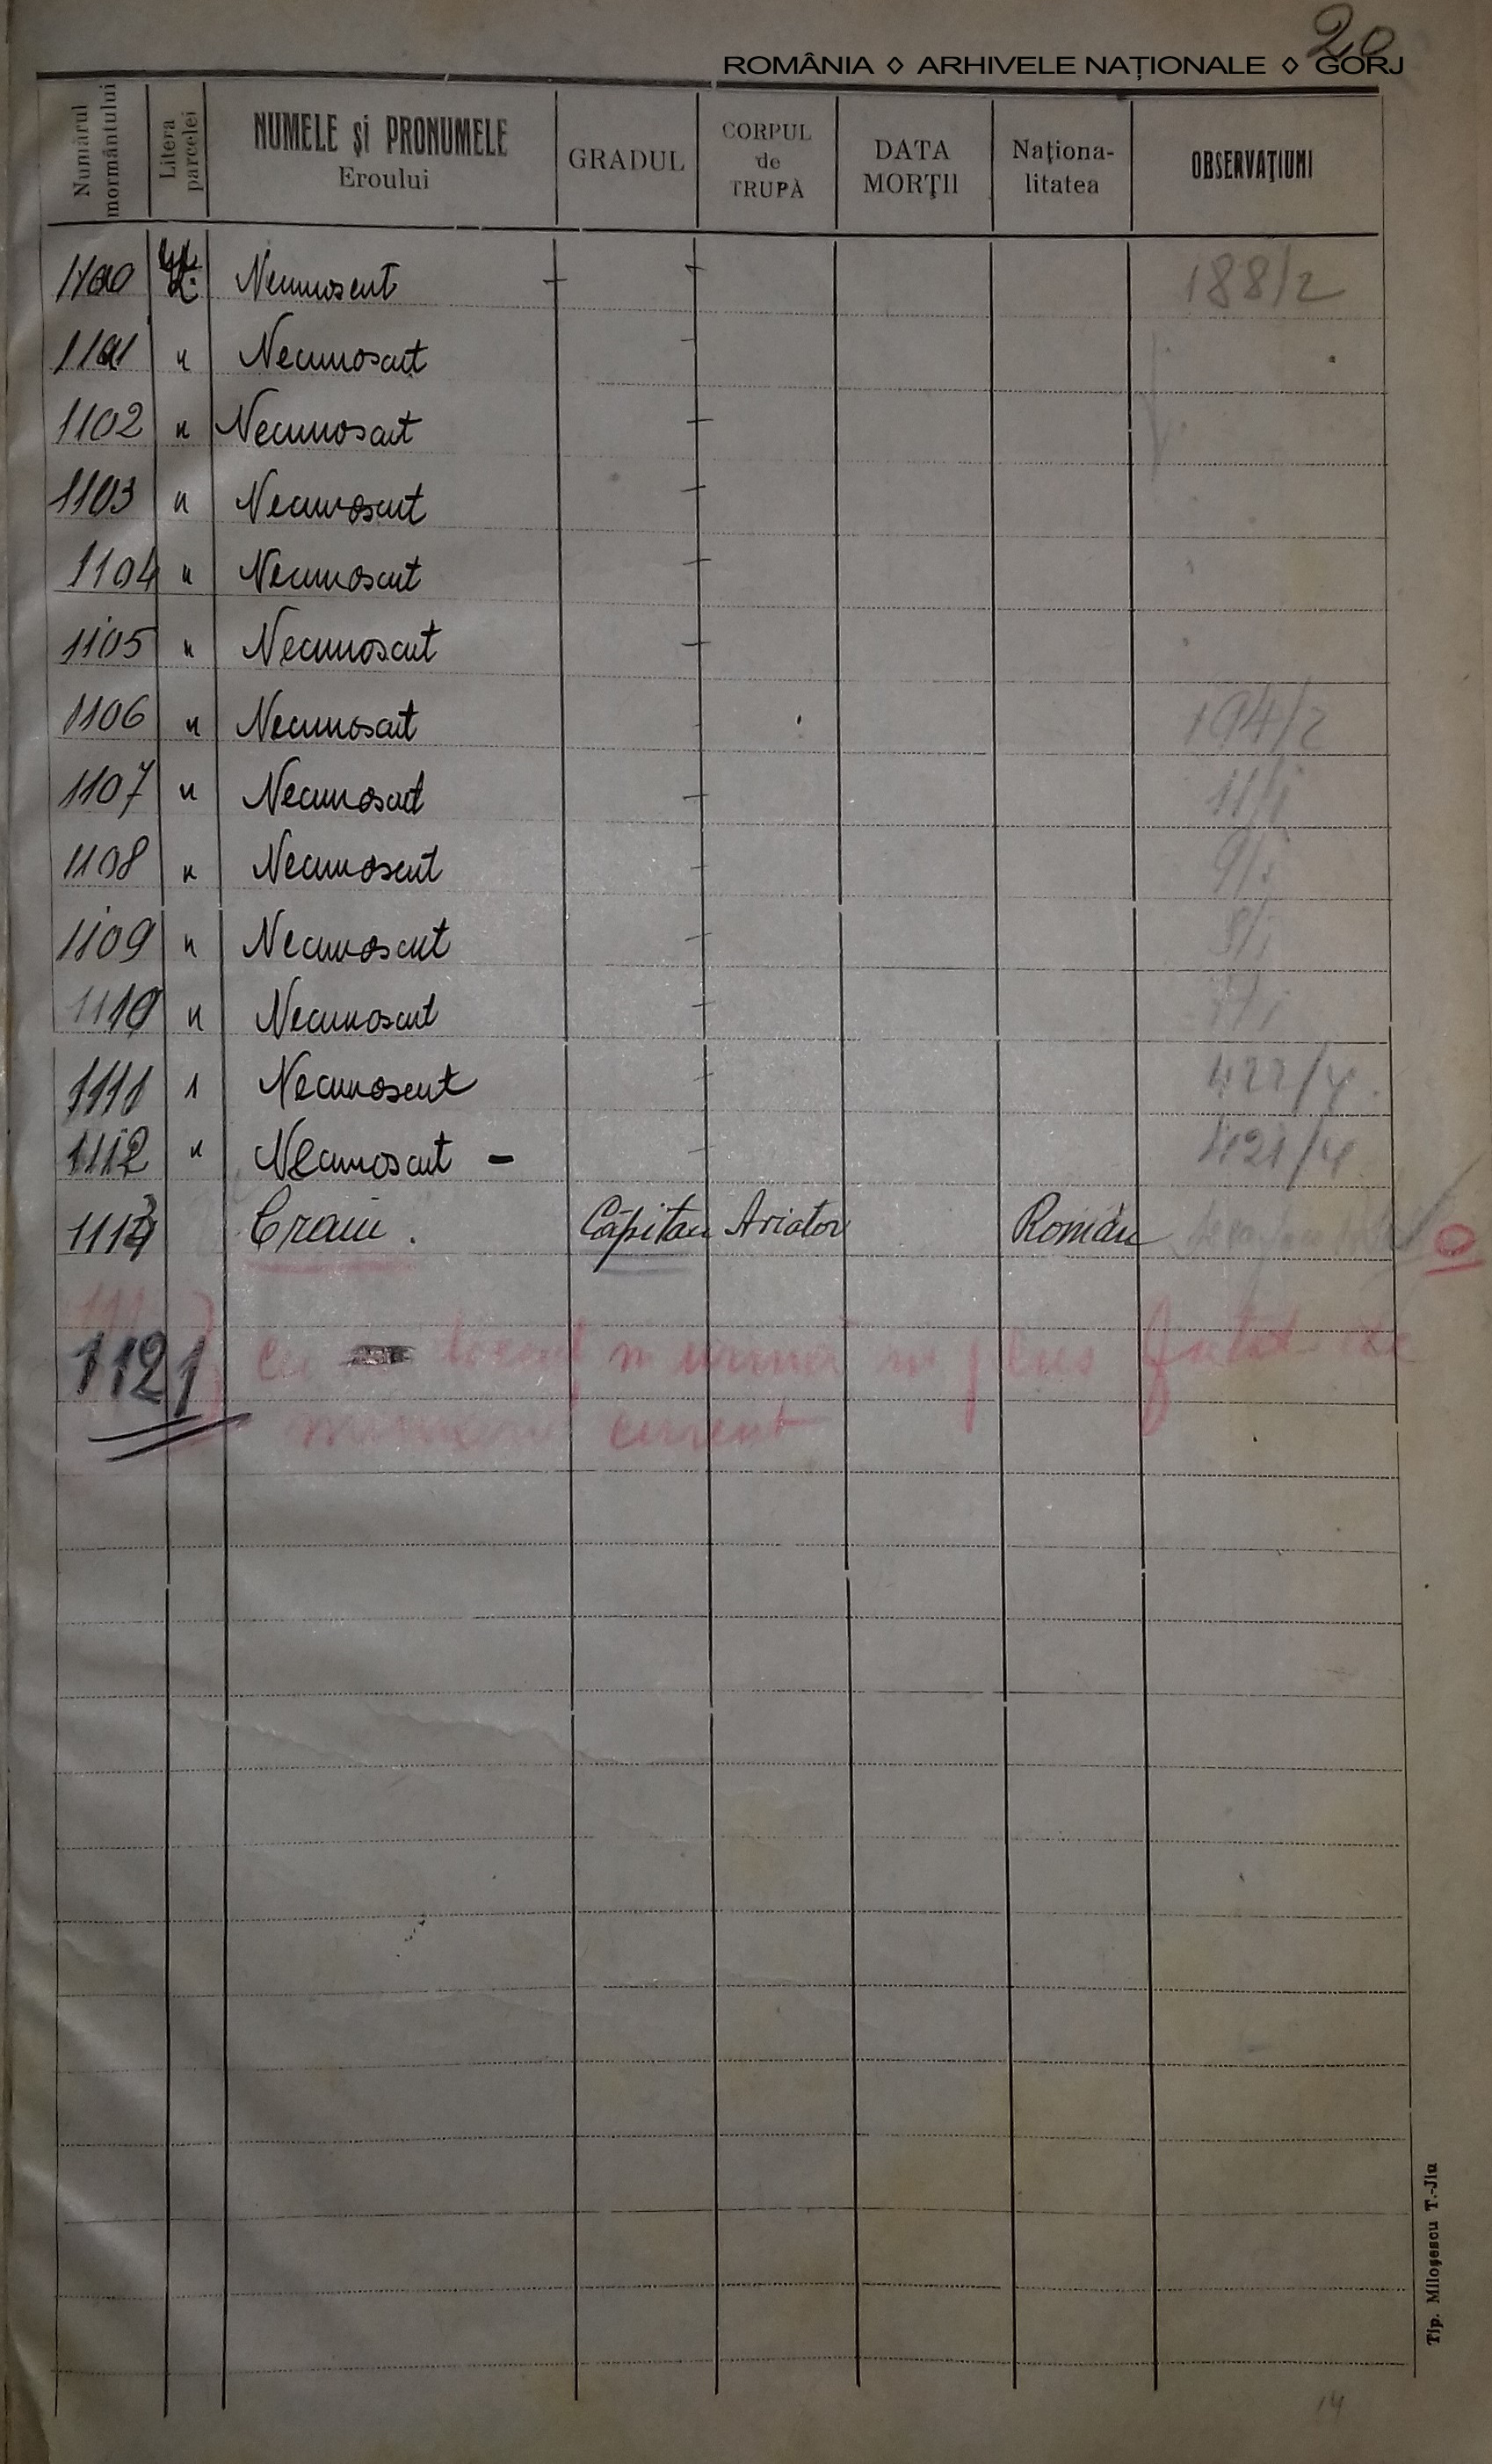 20
ROMÂNIA ◊ ARHIVELE NAȚIONALE ◊ GORJ
Numărul mormântului Litera parcelei NUMELE și PRONUMELE Eroului GRADUL CORPUL de TRUPĂ DATA MORȚII Naționa-litatea OBSERVAȚIUNI
1100 Necunoscut 188/2
1101 " Necunoscut
1102 " Necunoscut
1103 " Necunoscut
1104 " Necunoscut
1105 " Necunoscut
1106 " Necunoscut 194/2
1107 " Necunoscut
1108 " Necunoscut
1109 " Necunoscut
1110 " Necunoscut
1111 " Necunoscut 422/4
1112 " Necunoscut - 421/4
1113 Căpitan Aviator Român
0
1121 cu în plus față de
numărul curent
Tip. Miloșescu T.-Jiu
14